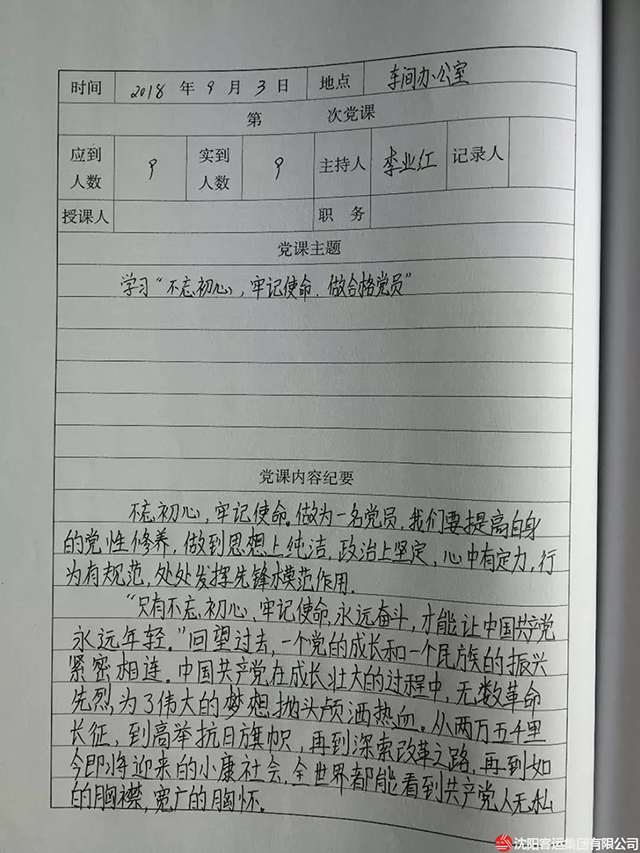 时间 2018 年 9 月 3 日 地点 车间办公室
第 次党课
应到人数 9 实到人数 9 主持人 李业红 记录人
授课人 职 务
党课主题
学习“不忘初心，牢记使命．做合格党员”
党课内容纪要
不忘初心，牢记使命。做为一名党员，我们要提高自身
的党性修养，做到思想上纯洁，政治上坚定，心中有定力，行
为有规范，处处发挥先锋模范作用．
“只有不忘初心、牢记使命，永远奋斗，才能让中国共产党
永远年轻。”回望过去，一个党的成长和一个民族的振兴
紧密相连。中国共产党在成长壮大的过程中，无数革命
先烈，为了伟大的梦想抛头颅洒热血。从两万五千里
长征，到高举抗日旗帜，再到深索改革之路，再到如
今即将迎来的小康社会，全世界都能看到共产党人无私
的胸襟，宽广的胸怀．
沈阳客运集团有限公司